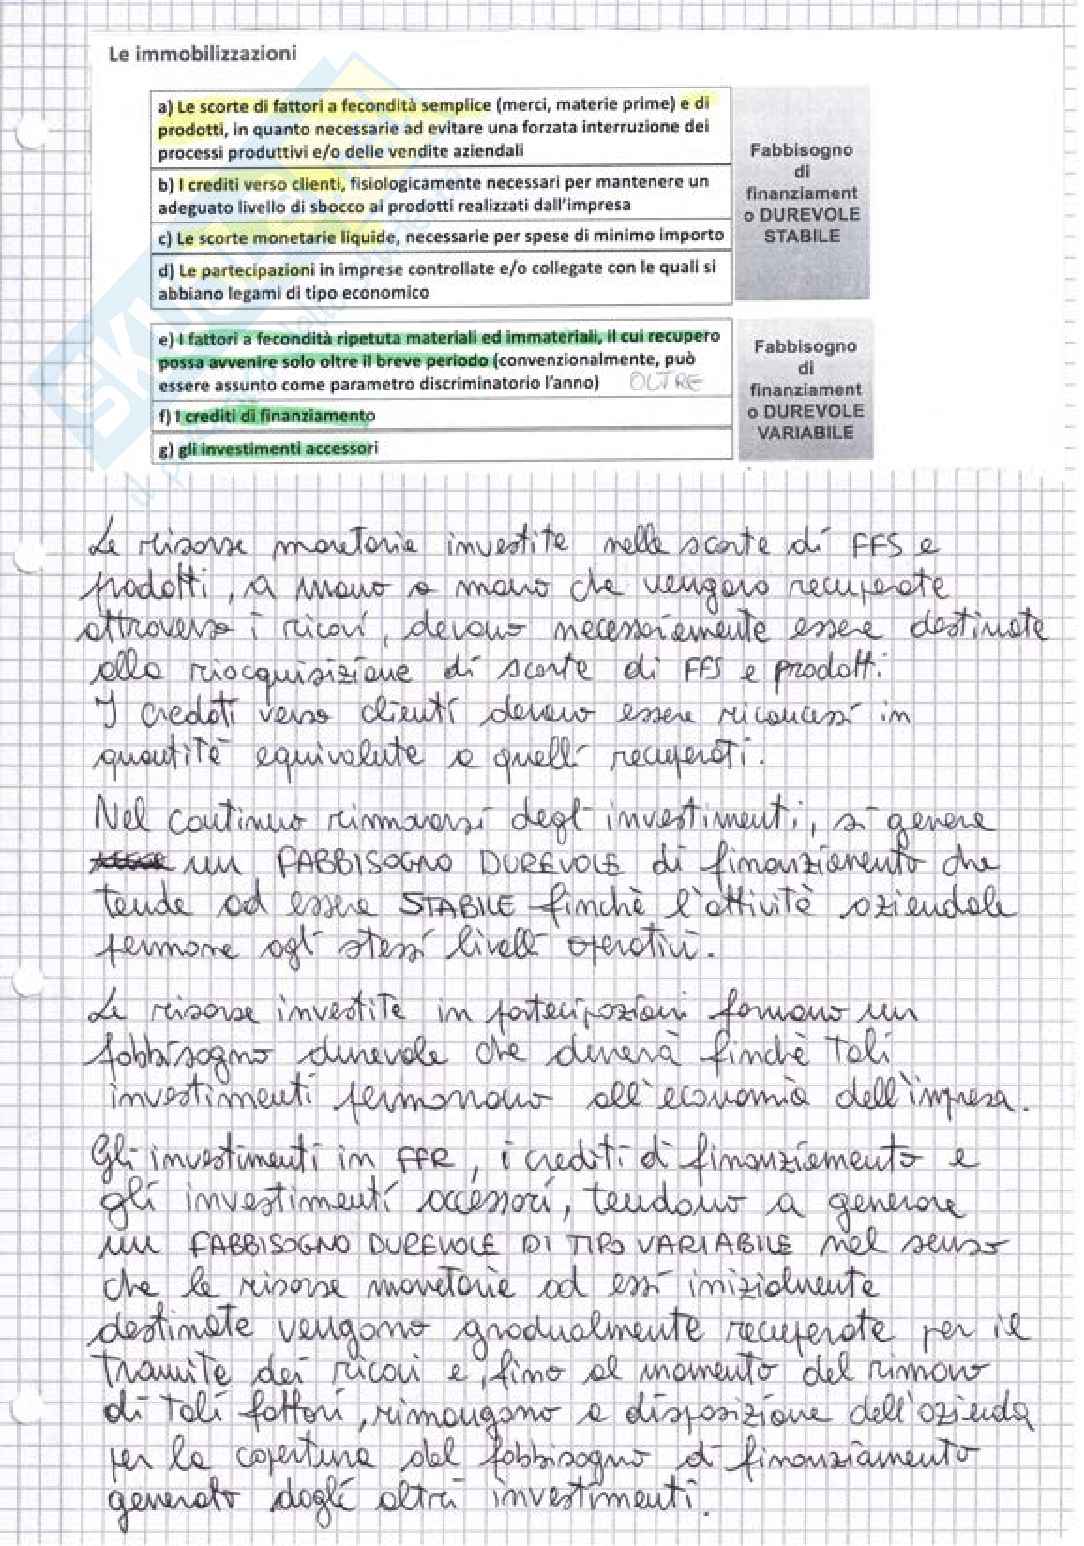 Le immobilizzazioni
a) Le scorte di fattori a fecondità semplice (merci, materie prime) e di
prodotti, in quanto necessarie ad evitare una forzata interruzione dei
processi produttivi e/o delle vendite aziendali
b) I crediti verso clienti, fisiologicamente necessari per mantenere un
adeguato livello di sbocco ai prodotti realizzati dall'impresa
c) Le scorte monetarie liquide, necessarie per spese di minimo importo
d) Le partecipazioni in imprese controllate e/o collegate con le quali si
abbiano legami di tipo economico
Fabbisogno
di
finanziament
o DUREVOLE
STABILE
e) I fattori a fecondità ripetuta materiali ed immateriali, il cui recupero
possa avvenire solo oltre il breve periodo (convenzionalmente, può
essere assunto come parametro discriminatorio l'anno) OLTRE
f) I crediti di finanziamento
g) gli investimenti accessori
Fabbisogno
di
finanziament
o DUREVOLE
VARIABILE
Le risorse monetarie investite nelle scorte di FFS e
prodotti, a mano a mano che vengono recuperate
attraverso i ricavi, devono necessariamente essere destinate
alla riacquisizione di scorte di FFS e prodotti.
I crediti verso clienti devono essere riconcessi in
quantità equivalente a quelli recuperati.
Nel continuo rinnovarsi degli investimenti, si genera
un FABBISOGNO DUREVOLE di finanziamento che
tende ad essere STABILE finchè l'attività aziendale
permane agli stessi livelli operativi.
Le risorse investite in partecipazioni formano un
fabbisogno durevole che durerà finchè tali
investimenti permangono all'economia dell'impresa.
Gli investimenti in FFR, i crediti di finanziamento e
gli investimenti accessori, tendono a generare
un FABBISOGNO DUREVOLE DI TIPO VARIABILE nel senso
che le risorse monetarie ad essi inizialmente
destinate vengono gradualmente recuperate per il
tramite dei ricavi e, fino al momento del rinnovo
di tali fattori, rimangono a disposizione dell'azienda
per la copertura del fabbisogno di finanziamento
generato dagli altri investimenti.